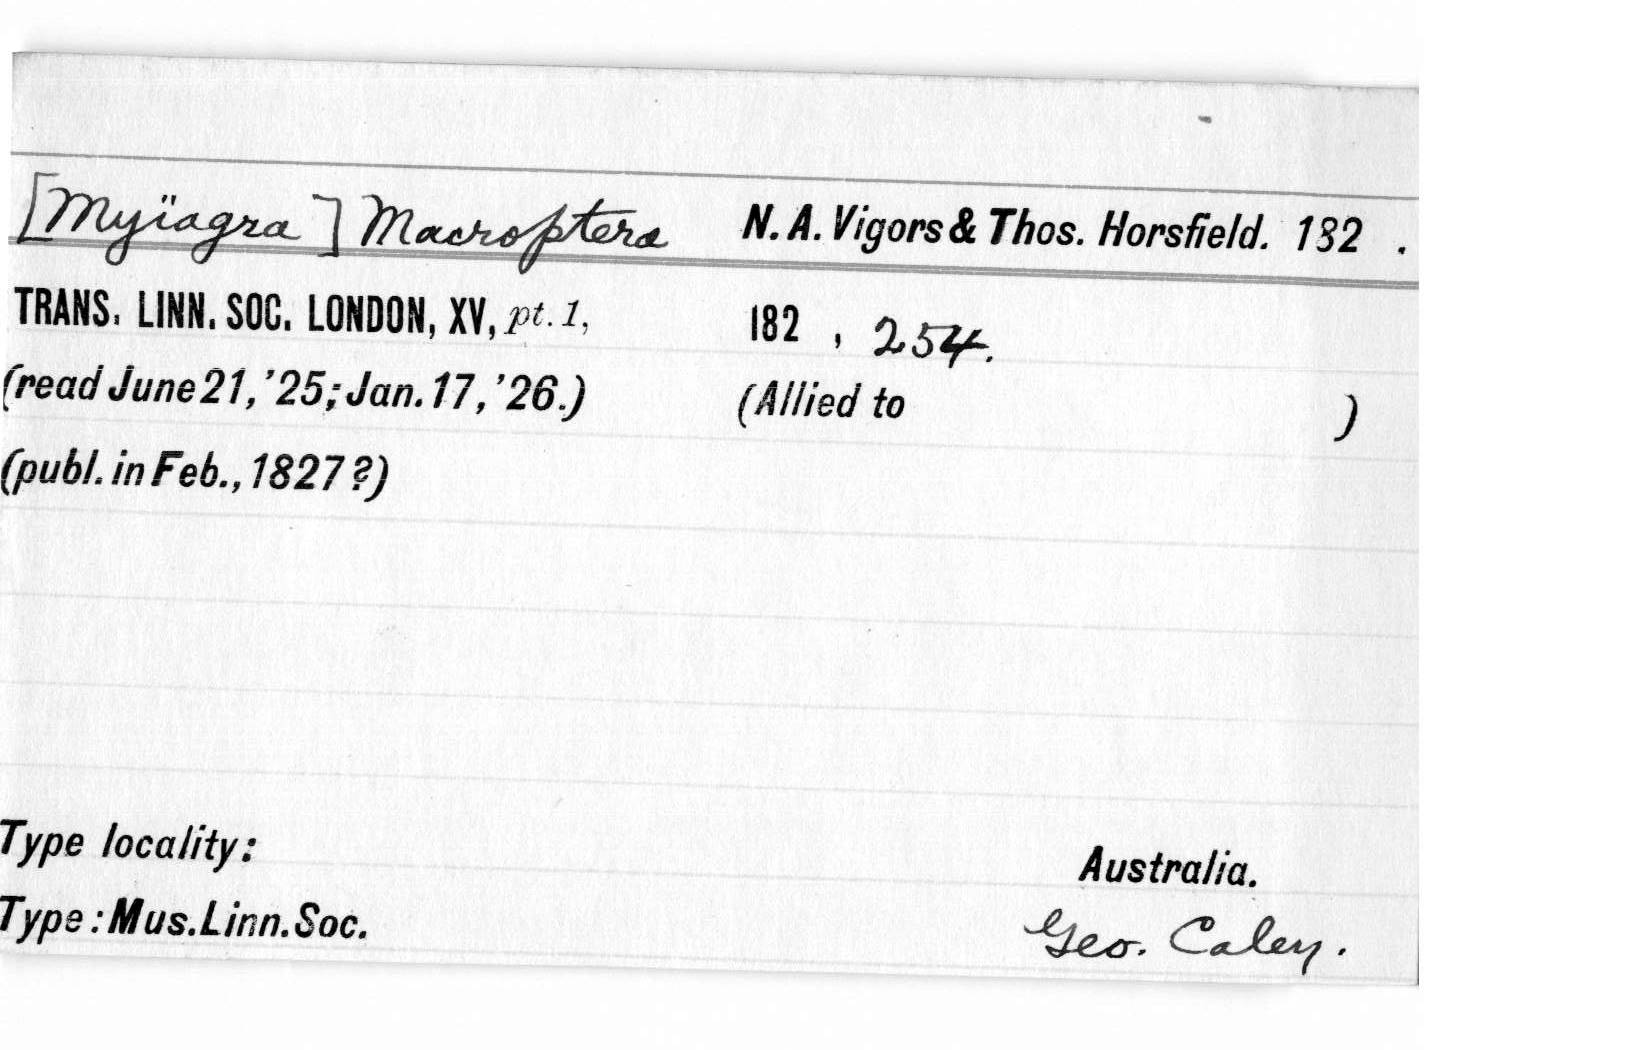 [Myïagra] Macroptera N. A. Vigors & Thos. Horsfield. 182 .
TRANS. LINN. SOC. LONDON, XV, pt. 1, 182 , 254.
(read June 21, '25; Jan. 17, '26.) (Allied to )
(publ. in Feb., 1827 ?)
Type locality: Australia.
Type: Mus. Linn. Soc. Geo. Caley.